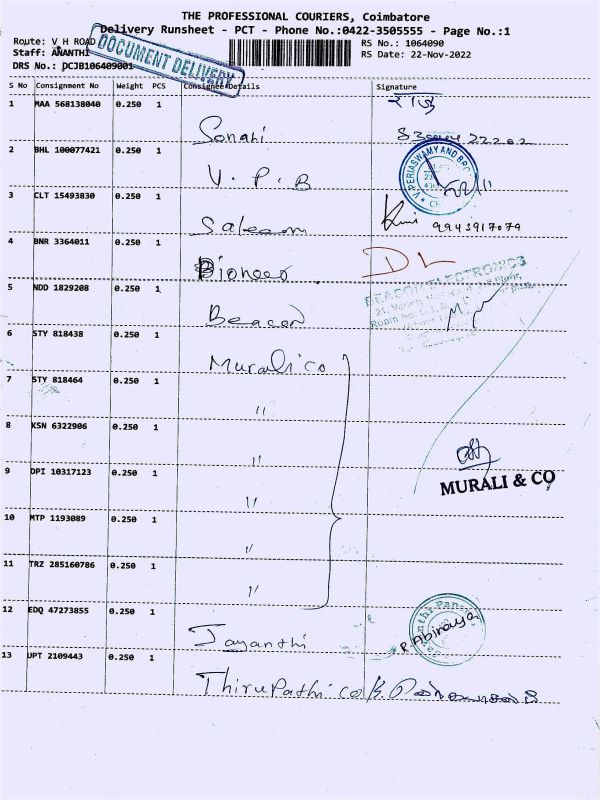 THE PROFESSIONAL COURIERS, Coimbatore
Delivery Runsheet - PCT - Phone No.:0422-3505555 - Page No.:1
Route: V H ROAD
RS No.: 1064090
Staff: ANANTHI
RS Date: 22-Nov-2022
DRS No.: PCJB106409001
DOCUMENT DELIVERY
S No Consignment No Weight PCS Consignee Details Signature
1 MAA 568138040 0.250 1 Sonahi
2 BHL 100077421 0.250 1 V.P.B
V.PERIASWAMY AND BRO
3 CLT 15493830 0.250 1 Saleem 9943917079
4 BNR 3364011 0.250 1 Pioneer DL
5 NDD 1829208 0.250 1 Beacon
BEACON ELECTRONICS
6 STY 818438 0.250 1 Murali co
7 STY 818464 0.250 1 "
8 KSN 6322906 0.250 1 "
9 DPI 10317123 0.250 1 "
MURALI & CO
10 MTP 1193089 0.250 1 "
11 TRZ 285160786 0.250 1 "
12 EDQ 47273855 0.250 1 Jayanthi R.Abiraya
13 UPT 2109443 0.250 1 Thirupathi co